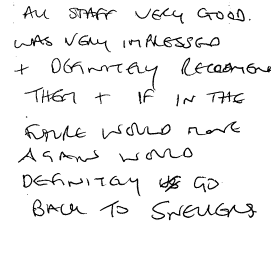 ALL STAFF VERY GOOD.
WAS VERY IMPRESSED
+ DEFINITELY RECOMMEN
THEM + IF IN THE
FUTURE WOULD MOVE
AGAIN WOULD
DEFINITELY GO
BACK TO SNELLERS